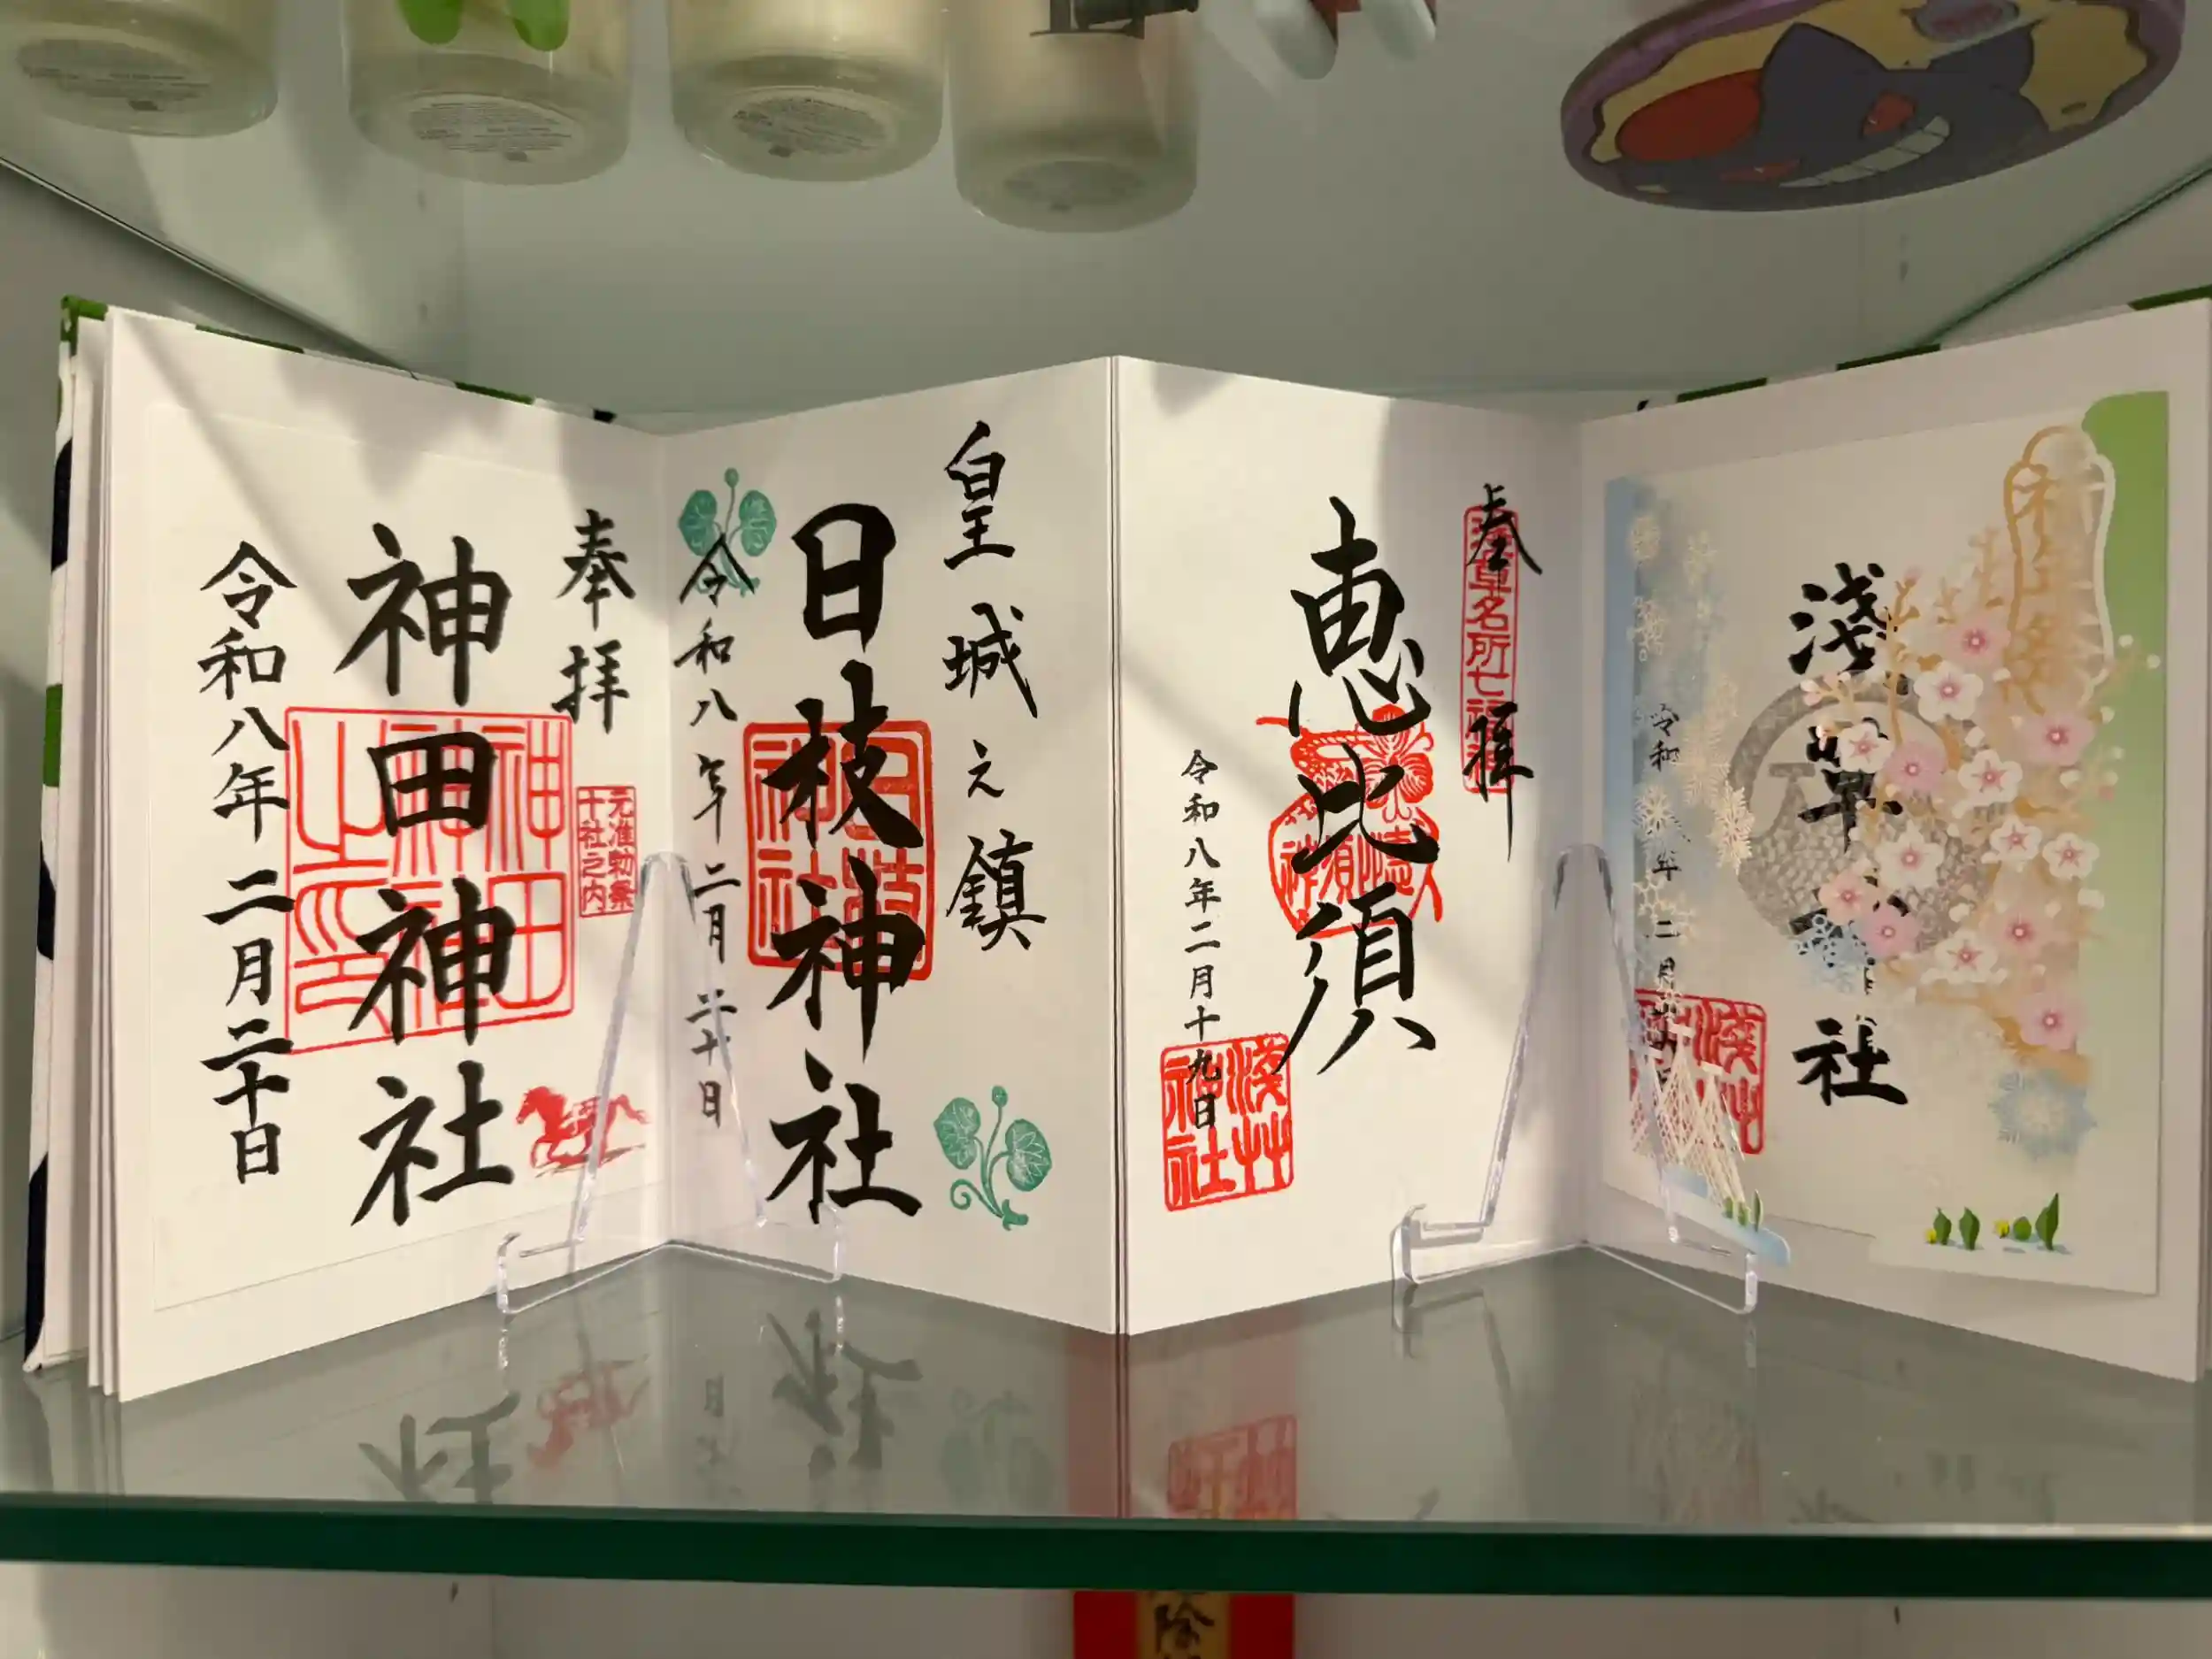 奉拝
元准勅祭
十社之内
神田神社
令和八年二月二十日
皇城之鎮
日枝神社
令和八年二月二十日
奉拝
浅草名所七福
恵比須
令和八年二月十九日
浅艸
神社
浅草
社
令和
年二月
浅艸
除